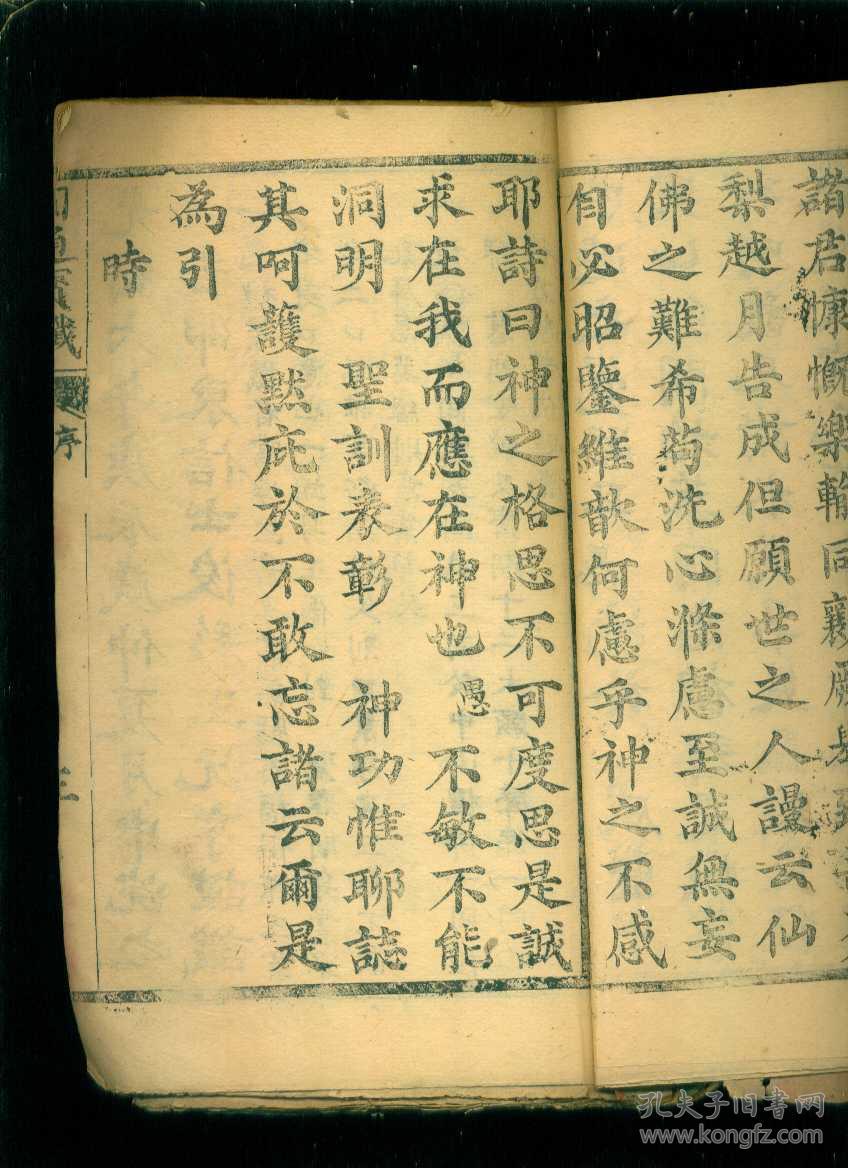 諸君慷慨樂輸同襄厥
梨越月告成但願世之人謾云仙
佛之難希茍洗心滌慮至誠無妄
自必昭鑒維歆何慮乎神之不感
耶詩曰神之格思不可度思是誠
求在我而應在神也愚不敏不能
洞明 聖訓表彰 神功惟聊誌
其呵護默庇於不敢忘諸云爾是
為引
時
序
三
孔夫子旧书网
www.kongfz.com